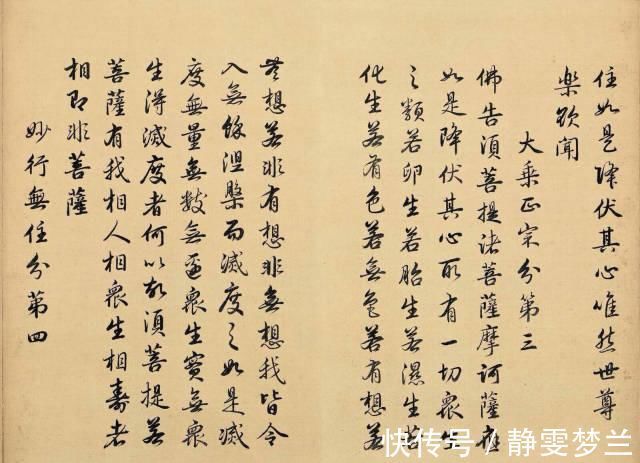 住如是降伏其心唯然世尊
樂欲聞
大乘正宗分第三
佛告須菩提諸菩薩摩訶薩應
如是降伏其心所有一切衆生
之類若卵生若胎生若濕生若
化生若有色若無色若有想若
無想若非有想非無想我皆令
入無餘涅槃而滅度之如是滅
度無量無數無邊衆生實無衆
生得滅度者何以故須菩提若
菩薩有我相人相衆生相壽者
相即非菩薩
妙行無住分第四
快传号/静雯梦兰